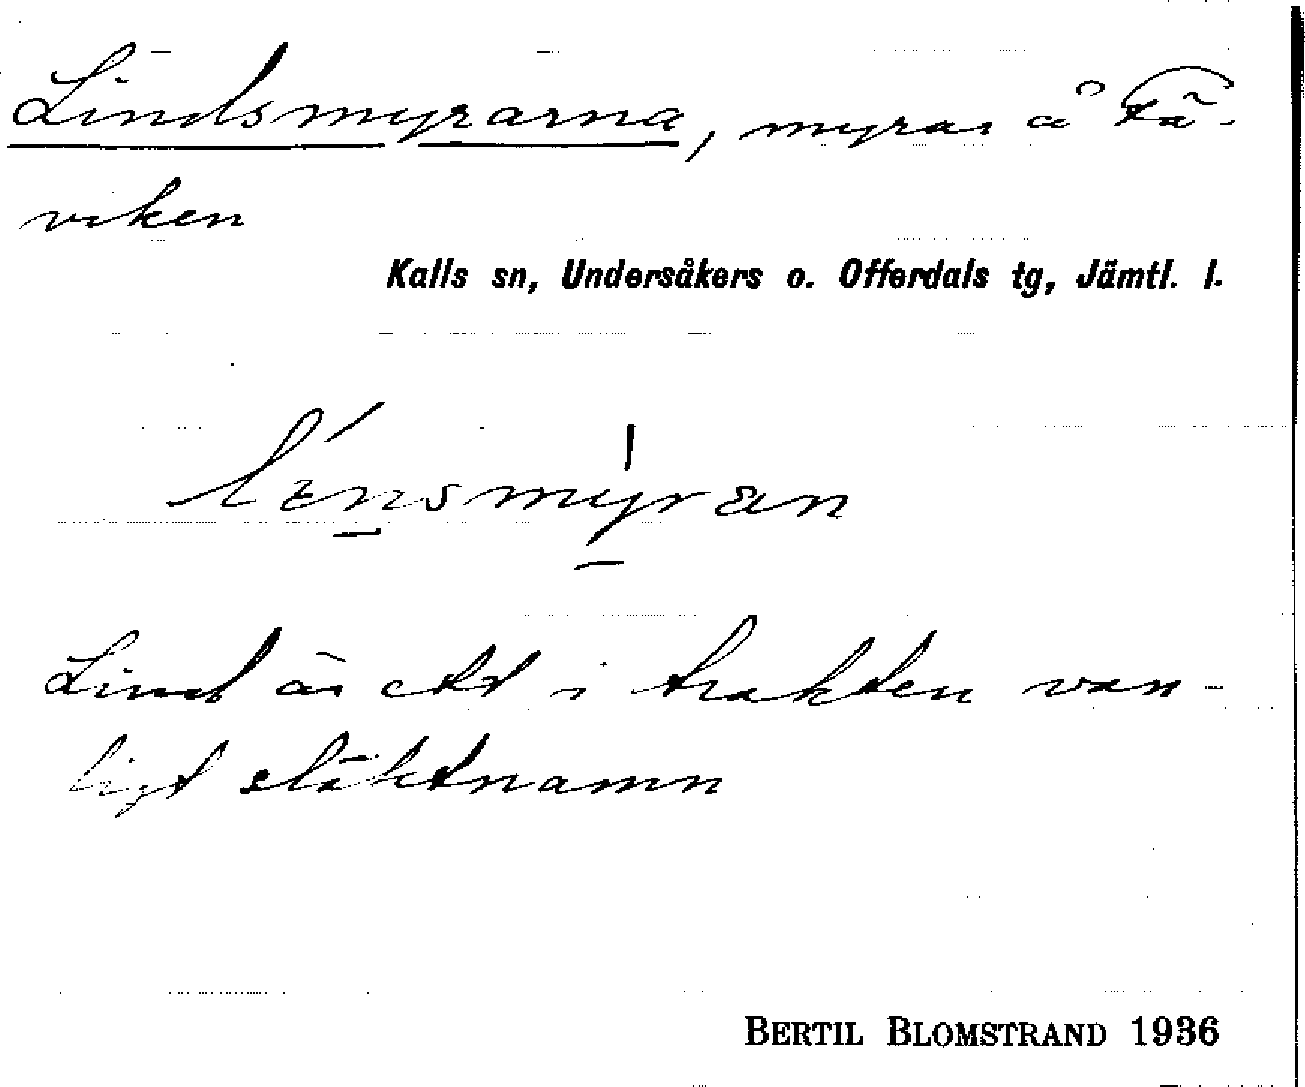 Lindsmyrarna, myrar å Fä-
viken
Kalls sn, Undersåkers o. Offerdals tg, Jämtl. l.
Lind är ett i trakten van-
ligt släktnamn
BERTIL BLOMSTRAND 1936